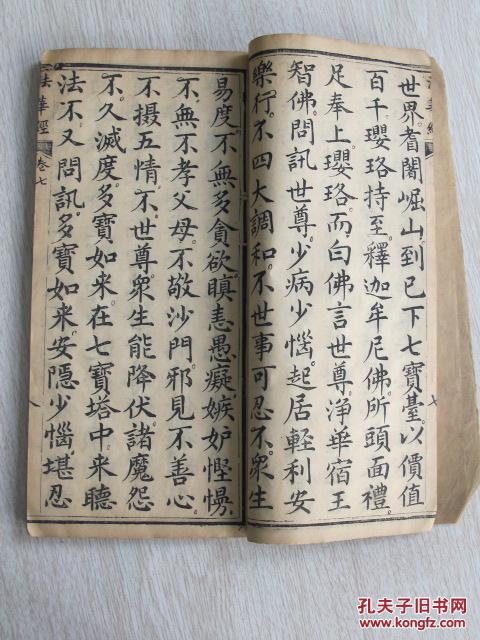 世界耆闍崛山到已下七寶臺以價值
百千瓔珞持至釋迦牟尼佛所頭面禮
足奉上瓔珞而白佛言世尊淨華宿王
智佛問訊世尊少病少惱起居輕利安
樂行不四大調和不世事可忍不眾生
易度不無多貪欲瞋恚愚癡嫉妒慳慢
不無不孝父母不敬沙門邪見不善心
不攝五情不世尊眾生能降伏諸魔怨
不久滅度多寶如來在七寶塔中來聽
法不又問訊多寶如來安隱少惱堪忍
法華經
卷七
八
孔夫子旧书网
www.kongfz.com